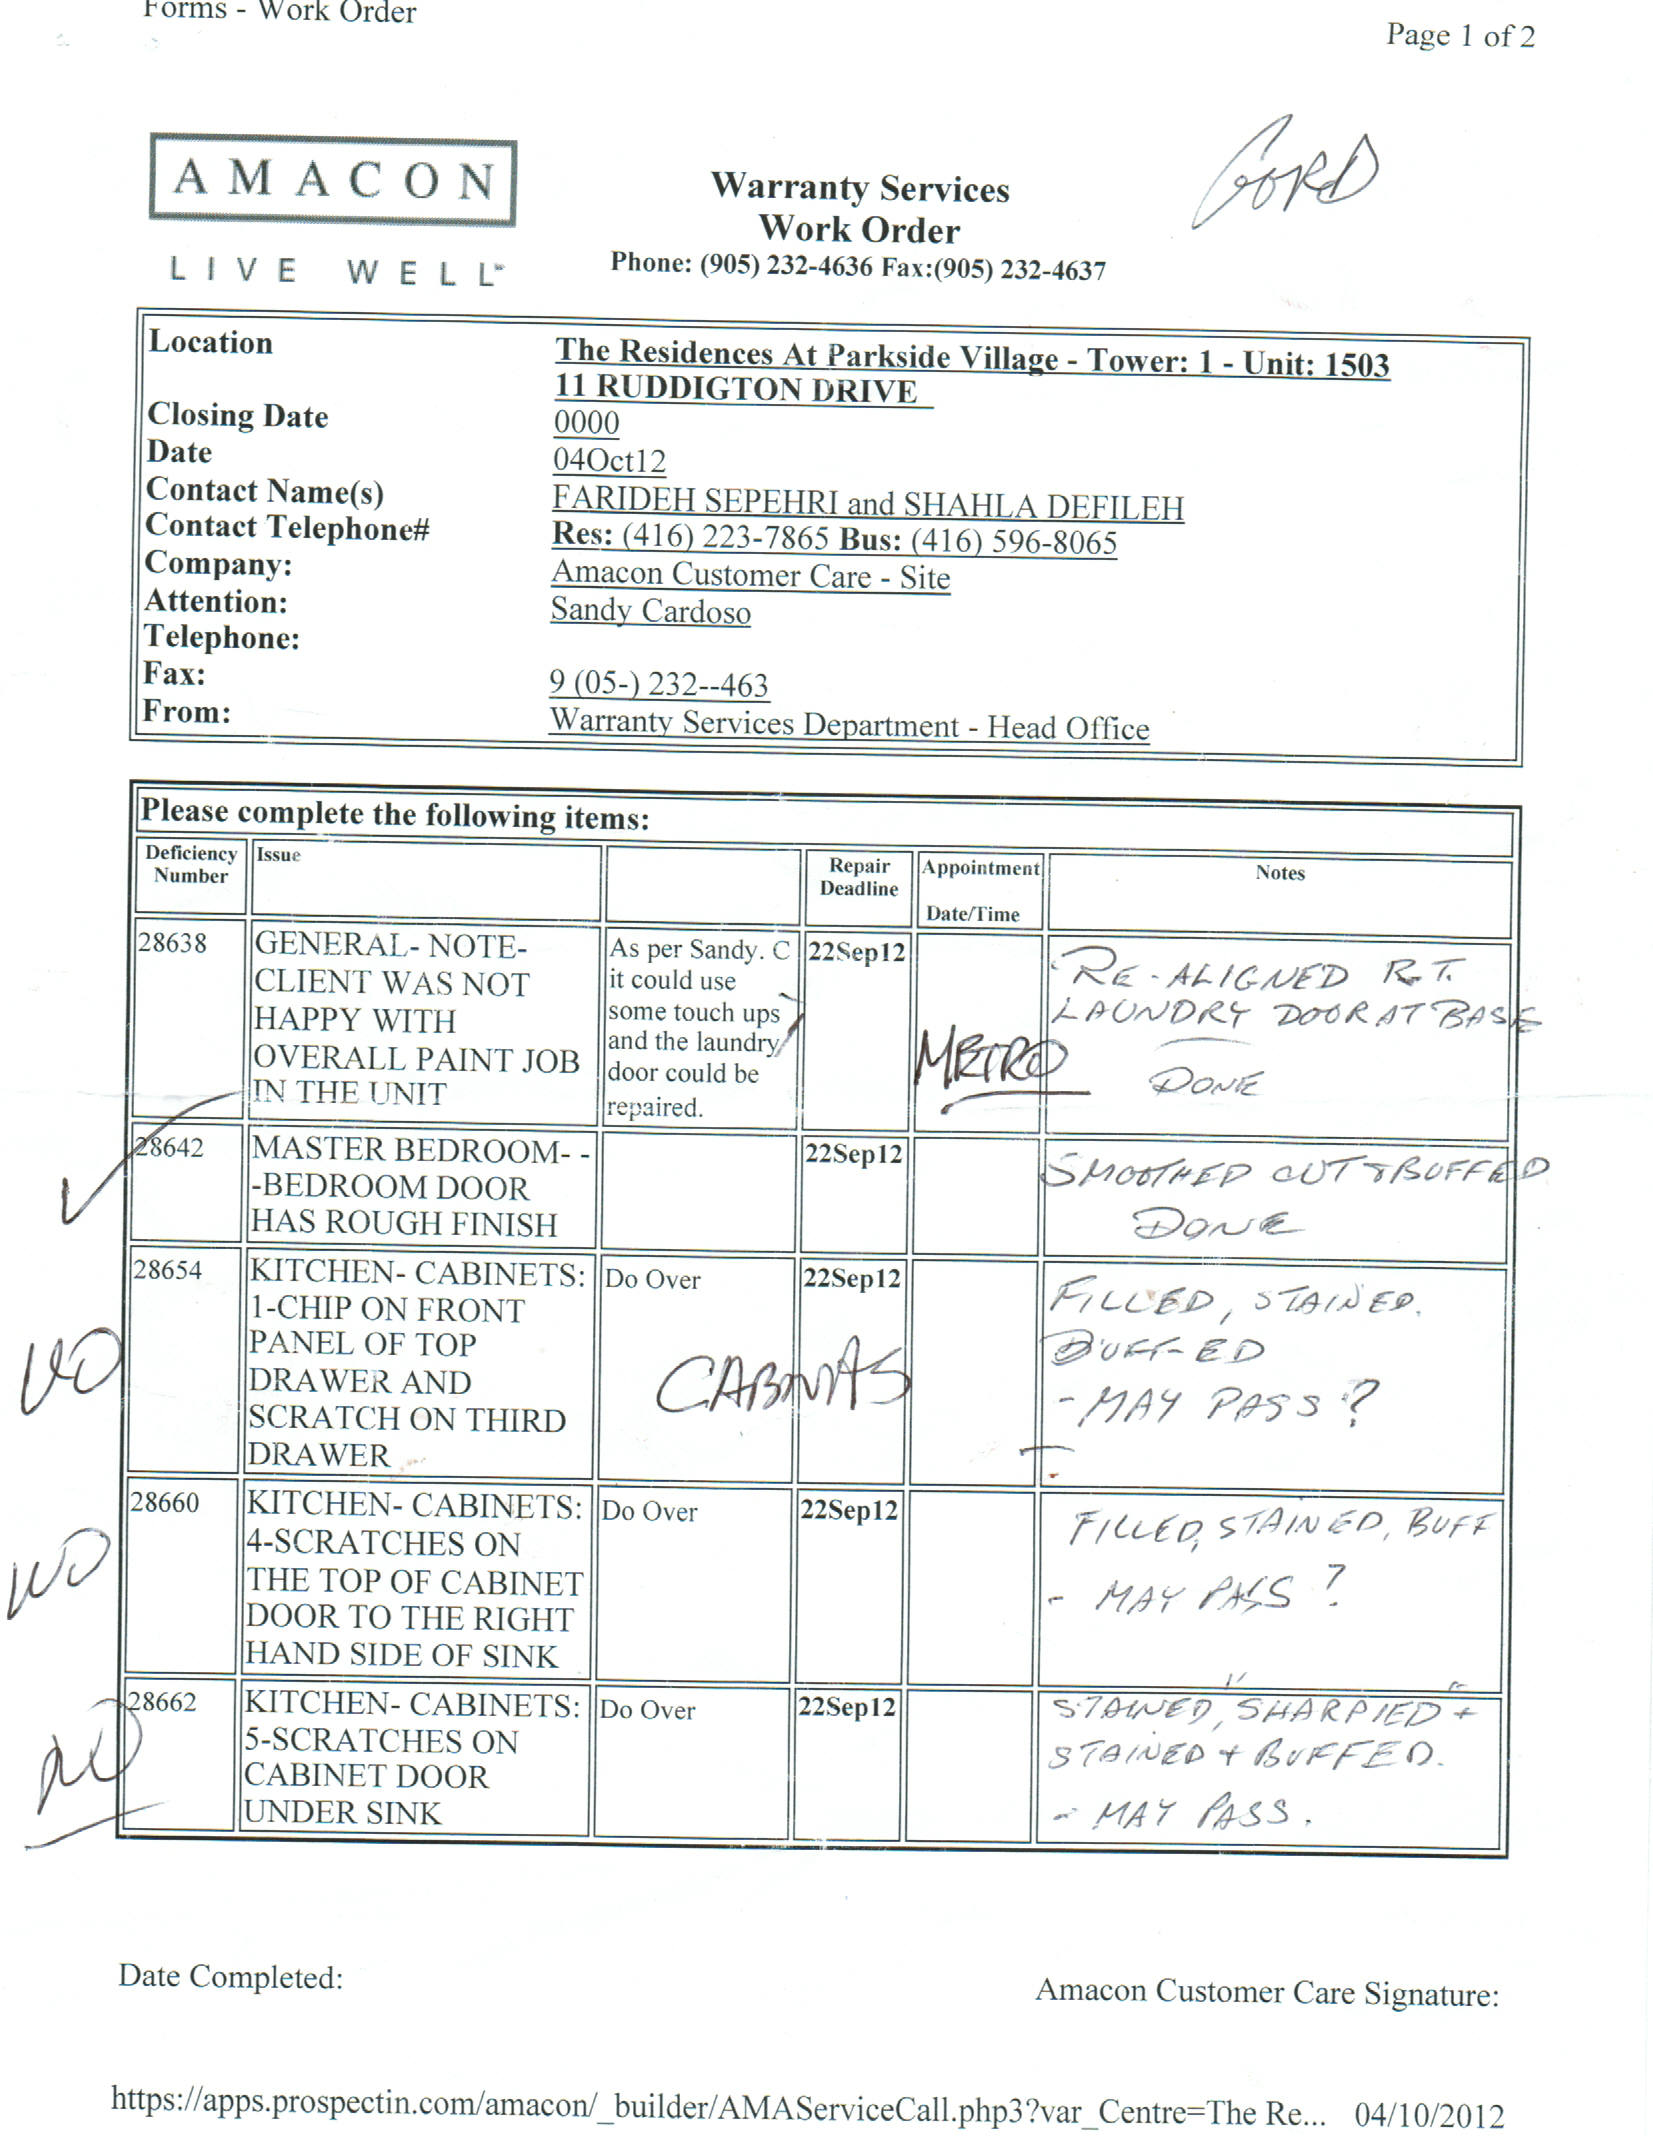 Forms - Work Order
Page 1 of 2
GORD
AMACON
LIVE WELL
Warranty Services
Work Order
Phone: (905) 232-4636 Fax:(905) 232-4637
Location The Residences At Parkside Village - Tower: 1 - Unit: 1503
11 RUDDIGTON DRIVE
Closing Date 0000
Date 04Oct12
Contact Name(s) FARIDEH SEPEHRI and SHAHLA DEFILEH
Contact Telephone# Res: (416) 223-7865 Bus: (416) 596-8065
Company: Amacon Customer Care - Site
Attention: Sandy Cardoso
Telephone:
Fax: 9 (05-) 232--463
From: Warranty Services Department - Head Office
Please complete the following items:
Deficiency
Number
Issue
Repair
Deadline
Appointment
Date/Time
Notes
28638
GENERAL- NOTE-
CLIENT WAS NOT
HAPPY WITH
OVERALL PAINT JOB
IN THE UNIT
As per Sandy. C
it could use
some touch ups
and the laundry
door could be
repaired.
22Sep12
METRO
RE-ALIGNED R.T.
LAUNDRY DOOR AT BASE
DONE
28642
MASTER BEDROOM- -
-BEDROOM DOOR
HAS ROUGH FINISH
22Sep12
SMOOTHED CUT + BUFFED
DONE
NO
28654
KITCHEN- CABINETS:
1-CHIP ON FRONT
PANEL OF TOP
DRAWER AND
SCRATCH ON THIRD
DRAWER
Do Over
22Sep12
FILLED, STAINED.
BUFFED
- MAY PASS?
NO
28660
KITCHEN- CABINETS:
4-SCRATCHES ON
THE TOP OF CABINET
DOOR TO THE RIGHT
HAND SIDE OF SINK
Do Over
22Sep12
FILLED, STAINED, BUFF
- MAY PASS?
NO
28662
KITCHEN- CABINETS:
5-SCRATCHES ON
CABINET DOOR
UNDER SINK
Do Over
22Sep12
STAINED, SHARPIED +
STAINED + BUFFED.
- MAY PASS.
Date Completed:
Amacon Customer Care Signature:
https://apps.prospectin.com/amacon/_builder/AMAServiceCall.php3?var_Centre=The Re... 04/10/2012